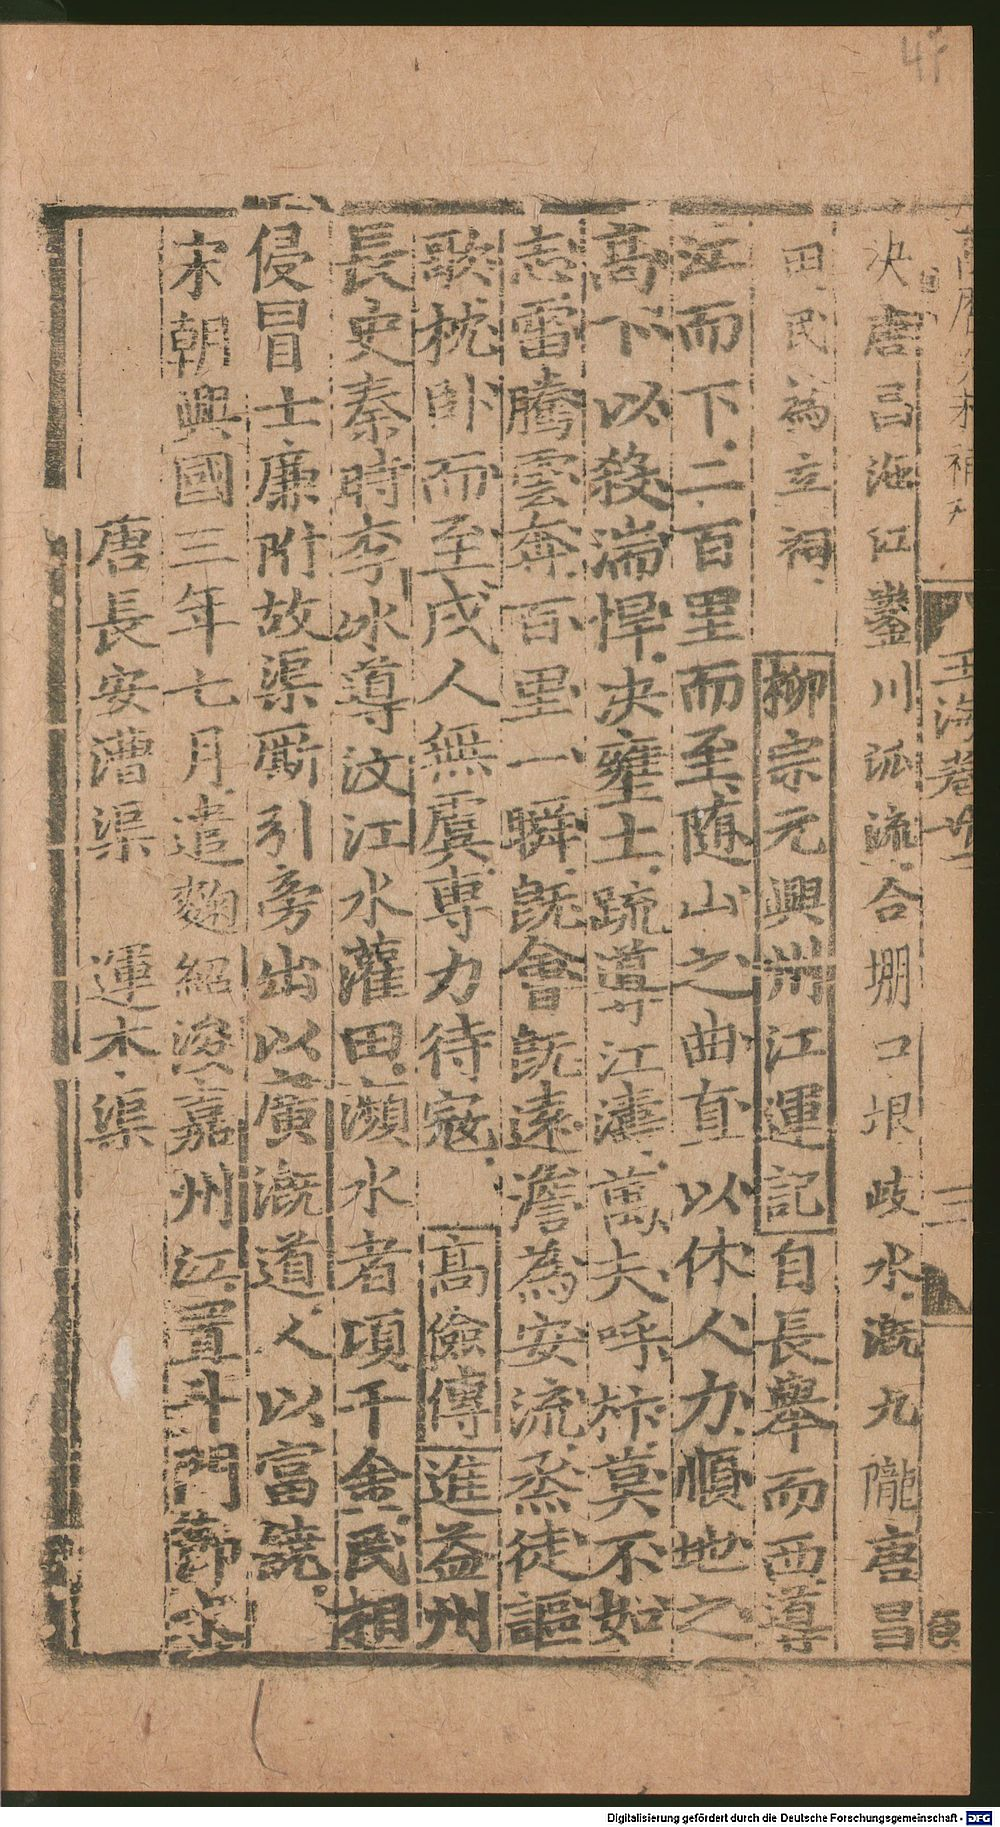 決唐昌沲江鑿川𣲖流合堋口垠岐水溉九隴唐昌
田民為立祠 柳宗元興州江運記自長舉而西導
江而下二百里而至随山之曲直以休人力順地之
高下以殺湍悍決壅土疏導江濤萬夫呼抃莫不如
志雷騰雲奔百里一瞬旣會旣遠澹為安流烝徒謳
歌枕卧而至戍人無虞專力待寇 高儉傳進益州
長史秦時李冰導汶江水灌田瀕水者頃千金民相
侵冒士廉附故渠厮引旁出以廣溉道人以富饒
宋朝興國三年七月遣麴紹濬嘉州江置斗門節水
唐長安漕渠 運木渠
玉海卷廿二
三
41
Digitalisierung gefördert durch die Deutsche Forschungsgemeinschaft - DFG